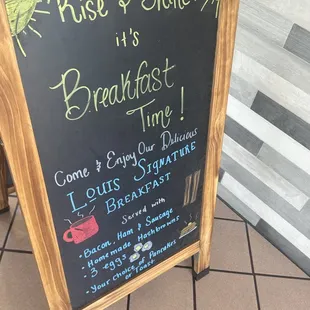 Rise & Shine!
it's
Breakfast
Time!
Come & Enjoy Our Delicious
Louis Signature
Breakfast
Served with
• Bacon, Ham & Sausage
• Homemade Hashbrowns
• 3 eggs
• Your Choice of Pancakes
or Toast